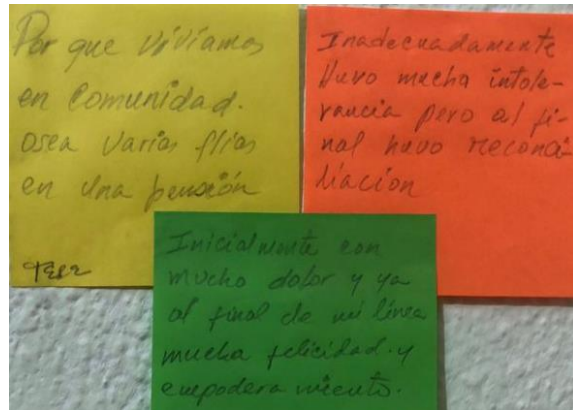 Por que vivíamos
en comunidad.
osea varias flias
en una pensión
Inadecuadamente
Huvo mucha intole-
rancia pero al fi-
nal huvo reconci-
liacion
Inicialmente con
mucho dolor y ya
al final de mi línea
mucha felicidad. y
empodera miento.